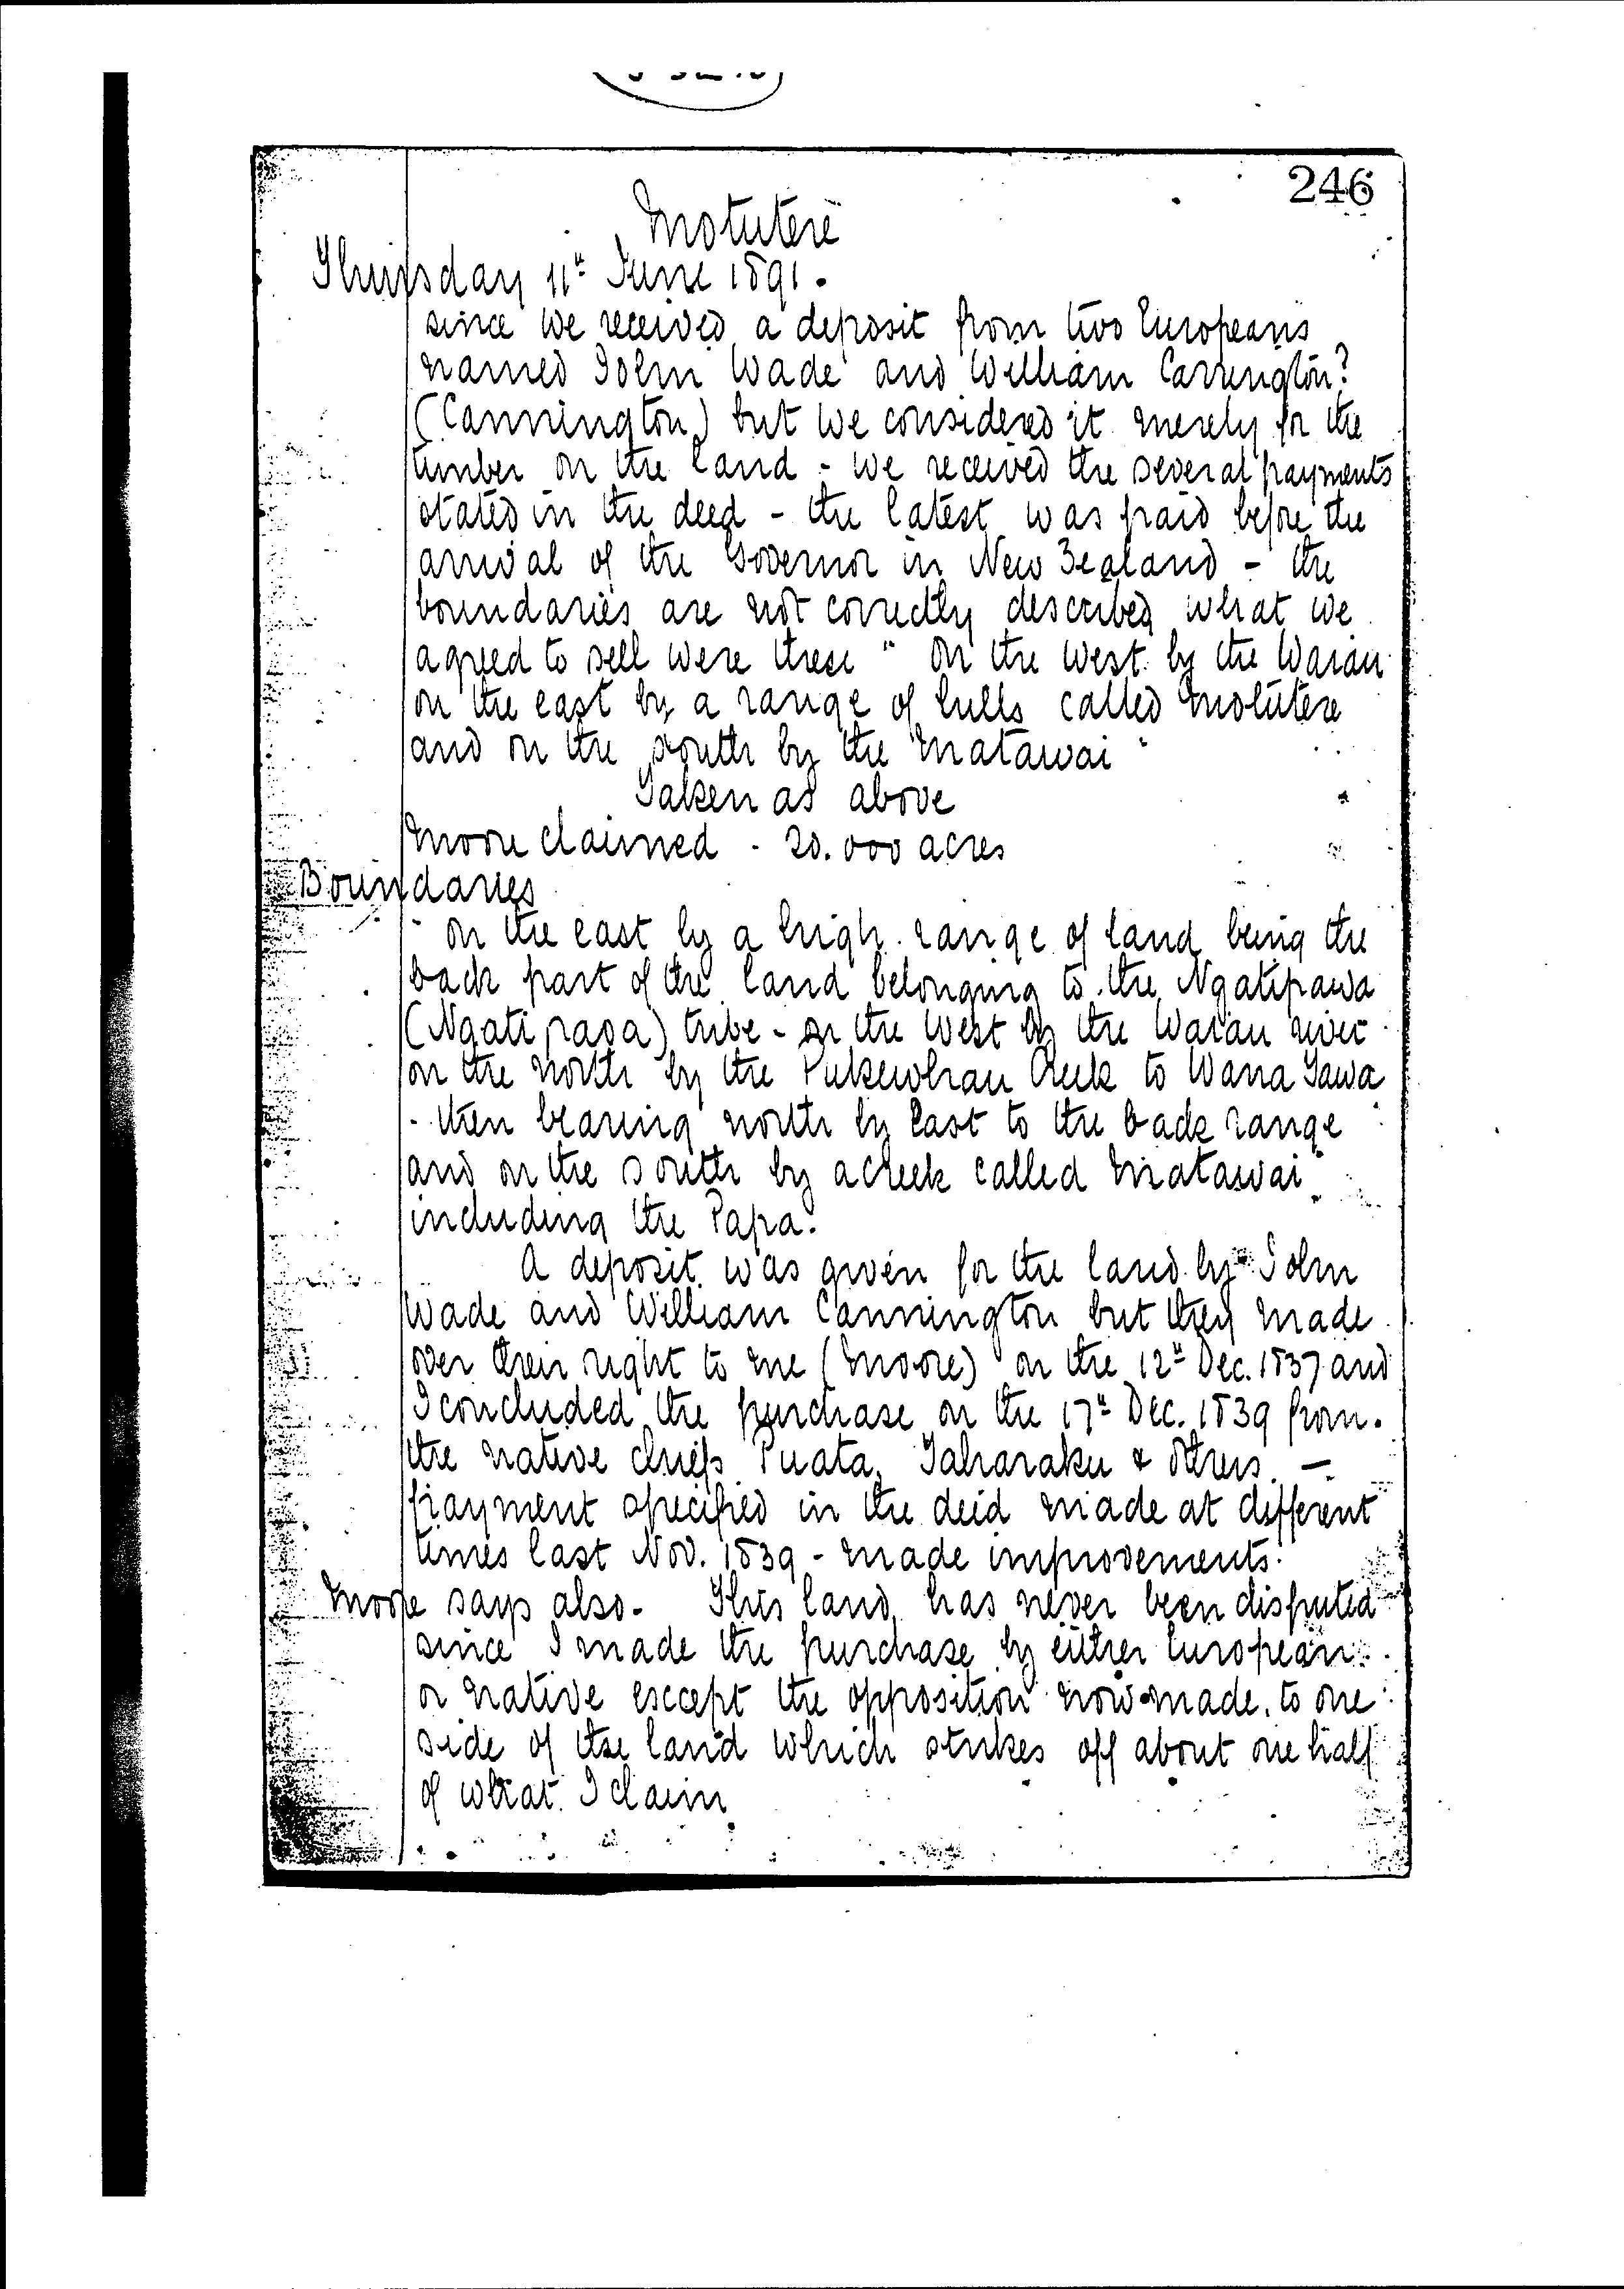 246
Motutere
Thursday 11th June 1891.
since we received a deposit from two Europeans
named John Wade and William Carrington?
(Cannington) but we considered it merely for the
timber on the land - we received the several payments
stated in the deed - the latest was paid before the
arrival of the Governor in New Zealand - the
boundaries are not correctly described what we
agreed to sell were these " on the west by the Warau
on the east by a range of hills called Motutere
and on the south by the Matawai "
Taken as above
Moore claimed - 20.000 acres
Boundaries
" on the east by a high range of land being the
back part of the land belonging to the Ngatipawa
(Ngati paoa) tribe - on the west by the Warau river
on the north by the Pukewhau Creek to Wana Tawa
- then bearing north by East to the back range
and on the south by a creek called Matawai"
including the Papa.
A deposit was given for the land by John
Wade and William Cannington but they made
over their right to me (Moore) on the 12th Dec. 1837 and
I concluded the purchase on the 17th Dec. 1839 from
the native chiefs Puata, Taharaku & others. -
payment specified in the deed made at different
times last Nov. 1839 - made improvements.
Moore says also - This land has never been disputed
since I made the purchase by either European
or native except the opposition now made to one
side of the land which strikes off about one half
of what I claim